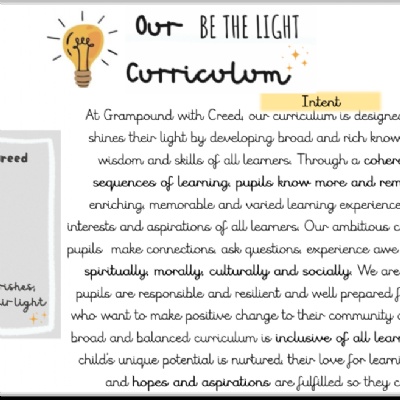 Our BE THE LIGHT
Curriculum
Intent
At Grampound with Creed, our curriculum is designe
shines their light by developing broad and rich know
wisdom and skills of all learners. Through a cohere
sequences of learning, pupils know more and rem
enriching, memorable and varied learning experience
interests and aspirations of all learners. Our ambitious c
pupils make connections, ask questions, experience awe
spiritually, morally, culturally and socially. We are
pupils are responsible and resilient and well prepared f
who want to make positive change to their community
broad and balanced curriculum is inclusive of all lear
child's unique potential is nurtured, their love for learni
and hopes and aspirations are fulfilled so they c
reed
rishes,
ir light